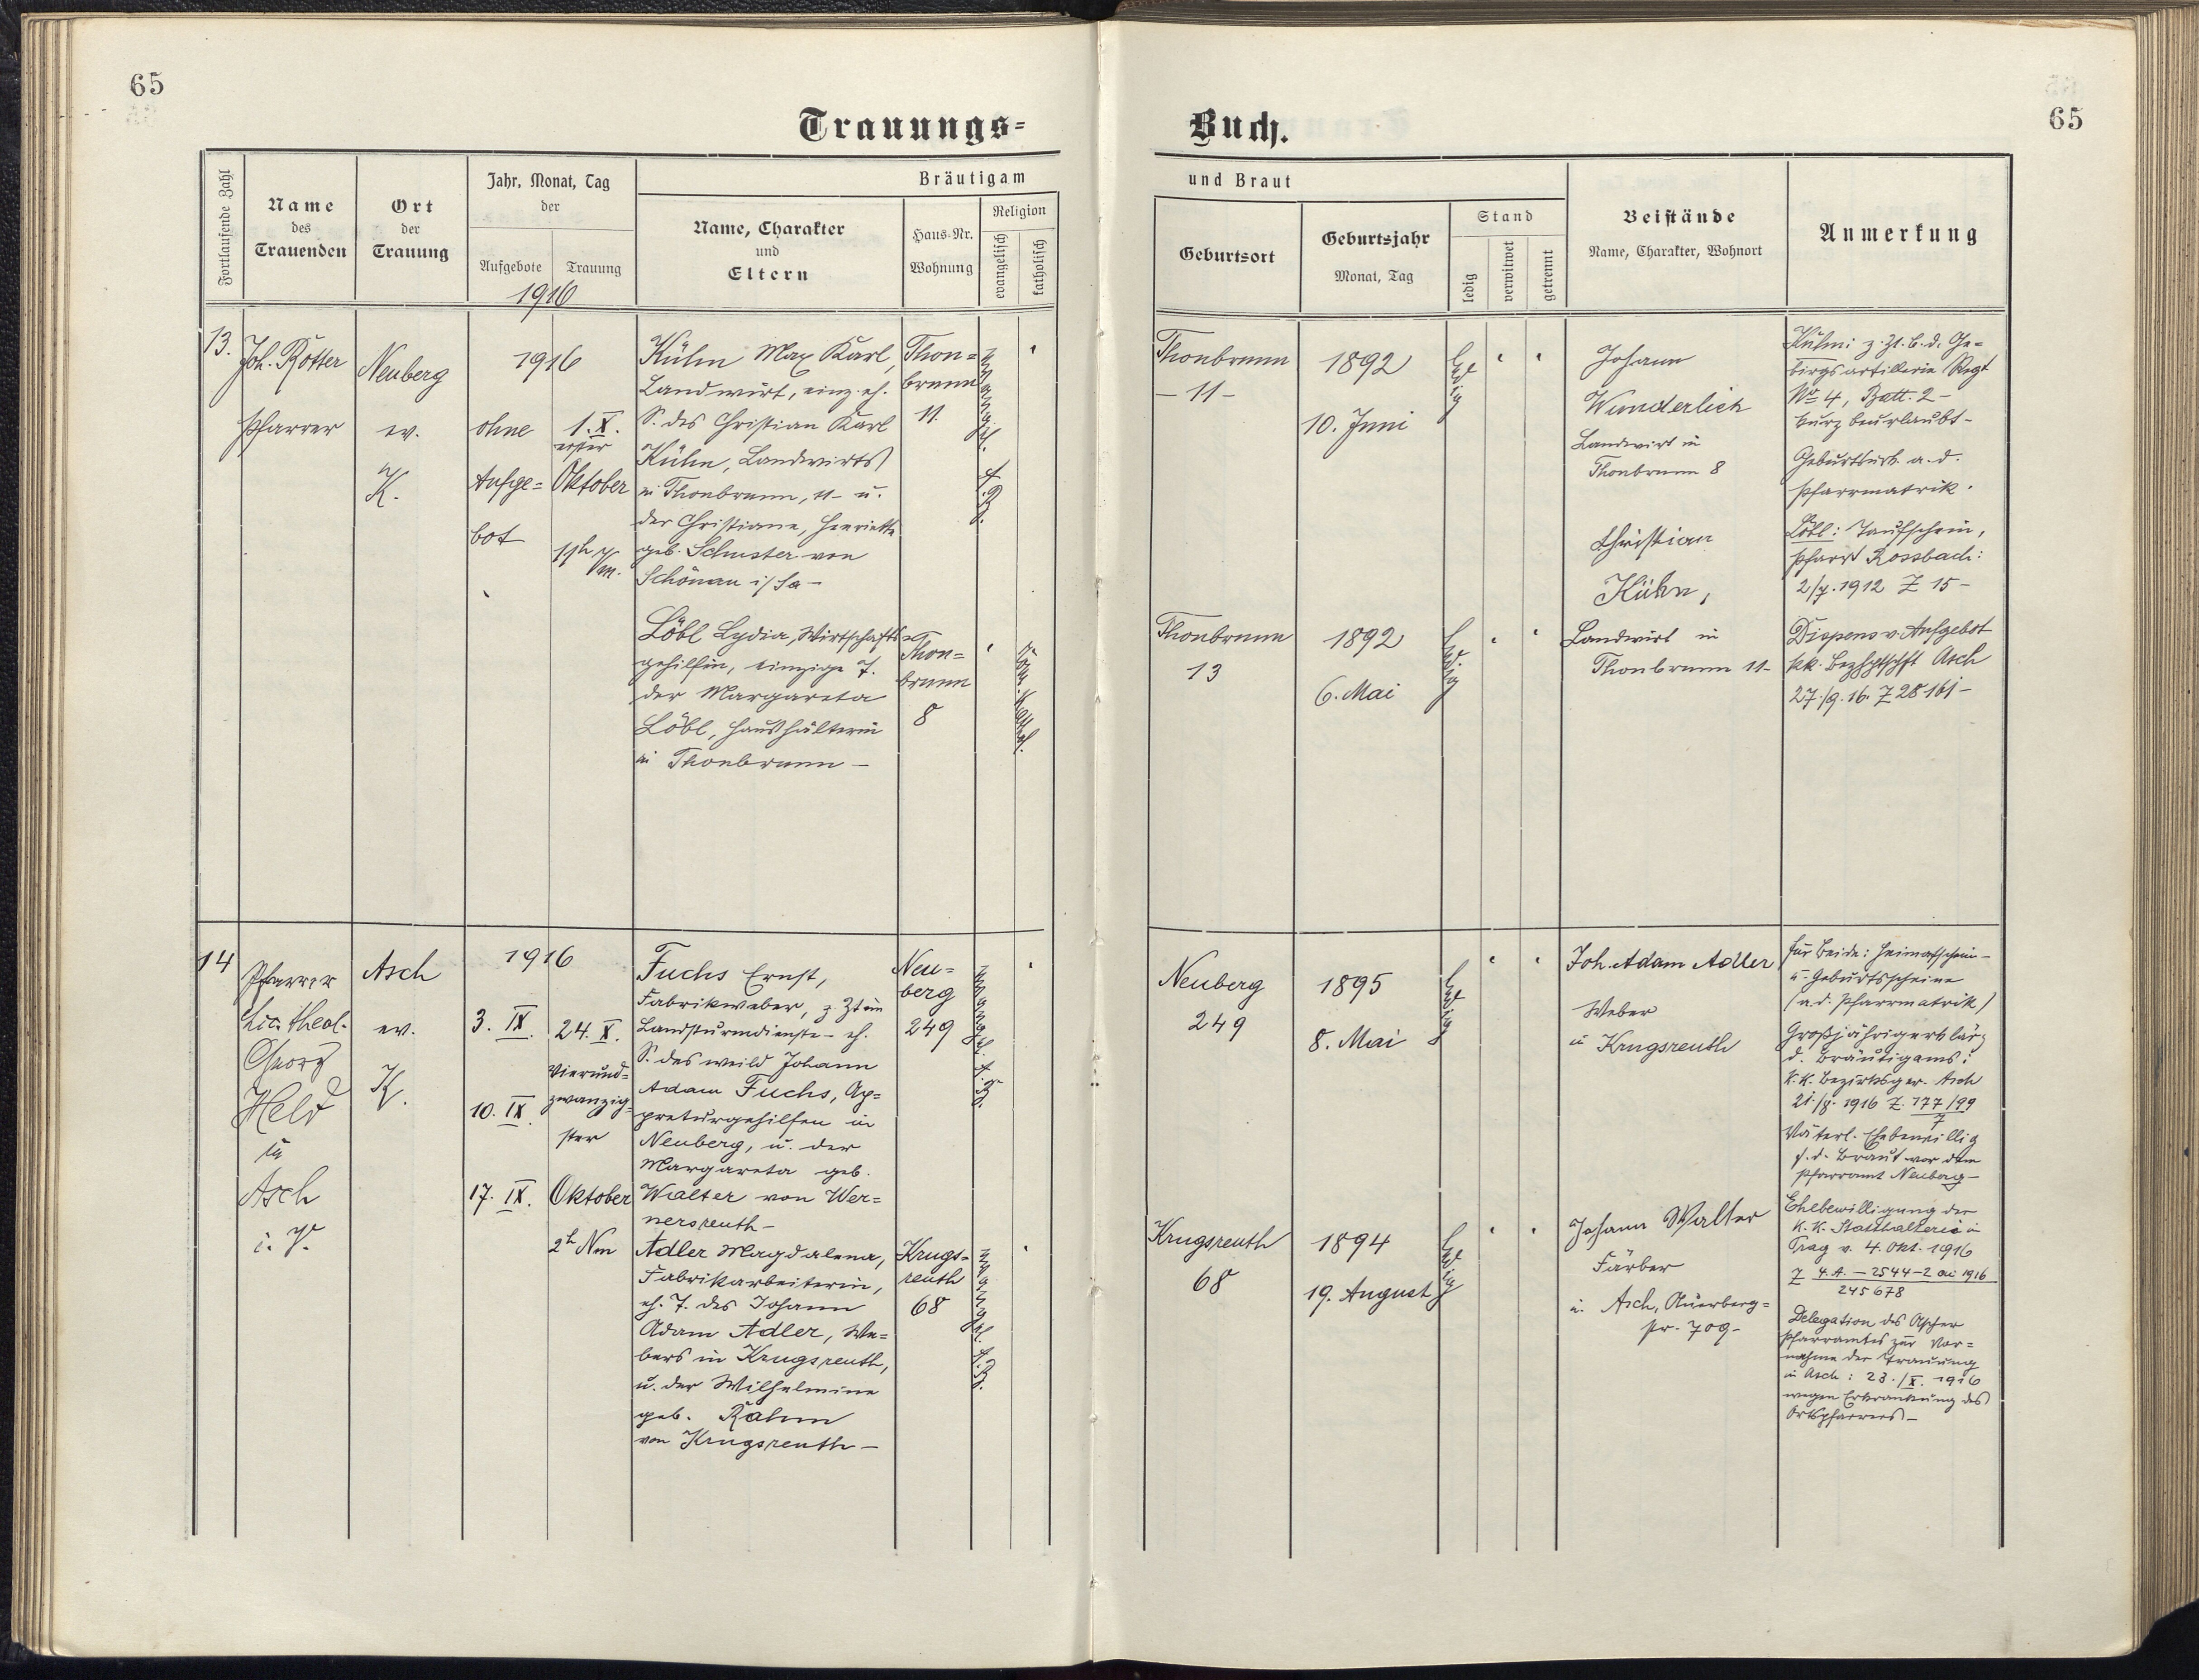 65
65
Trauungs=
Buch.
Fortlaufende Zahl
Name
des
Trauenden
Ort
der
Trauung
Jahr, Monat, Tag
der
Aufgebote
Trauung
1916
Bräutigam
Name, Charakter
und
Eltern
Haus-Nr.
Wohnung
Religion
evangelisch
katholisch
und Braut
Geburtsort
Geburtsjahr
Monat, Tag
Stand
ledig
verwitwet
getrennt
Beistände
Name, Charakter, Wohnort
Anmerkung
13.
Joh. Rotter
Pfarrer
Neuberg
ev.
K.
1916
ohne
Aufge=
bot
1. X.
erster
Oktober
11h Vm.
Kühn Max Karl,
Landwirt, einz. eh.
S. des Christian Karl
Kühn, Landwirts
in Thonbrunn, 11- u.
der Christiane, Henriette
geb. Schuster von
Schönau i/Sa -
Thon=
brunn
11
evangel.
A.B.
Thonbrunn
- 11 -
1892
10. Juni
ledig
Johann
Wunderlich
Landwirt in
Thonbrunn 8
Christian
Kühn,
Landwirt in
Thonbrunn 11-
Kühn: z. Zt. b. d. Ge=
birgsartillerie Regt
No 4, Batt. 2 -
kurz beurlaubt -
Geburtsurk. a. d.
Pfarrmatrik.
Löbl: Taufschein,
Pfarre Rossbach:
2/7. 1912 Z 15 -
Dispens v. Aufgebot
kk. Bezhptschft Asch
27./9. 16. Z 28161 -
Löbl Lydia, Wirtschafts=
gehilfin, einzige T.
der Margareta
Löbl, Haushälterin
in Thonbrunn -
Thon=
brunn
8
röm. kathol.
Thonbrunn
13
1892
6. Mai
ledig
14
Pfarrer
Lic. theol.
Georg
Held
in
Asch
i. V.
Asch
ev.
K.
1916
3. IX.
10. IX.
17. IX.
24. X.
Vierund=
zwanzig=
ster
Oktober
2h Nm
Fuchs Ernst,
Fabrikweber, z. Zt im
Landsturmdienste - eh.
S. des weild Johann
Adam Fuchs, Ap=
preturgehilfen in
Neuberg, u. der
Margareta geb.
Walter von Wer=
nersreuth -
Neu=
berg
249
evangel.
A.B.
Neuberg
249
1895
8. Mai
ledig
Joh. Adam Adler
Weber
in Krugsreuth
Johann Walter
Färber
in Asch,
str. 709 -
für Beide: Heimatschein -
u. Geburtsscheine
(a. d. Pfarrmatrik)
Großjährigerklärg
d. Bräutigams:
k. k. Bezirksger. Asch
21./8. 1916 Z. 177/99
7
Väterl. Ehebewillig
f. d. Braut vor dem
Pfarramt Neuberg -
Ehebewilligung der
k. k. Statthalterei in
Prag v. 4. Okt. 1916
Z 4. A. - 2544-2 ai 1916
245678
Delegation des Ascher
Pfarramtes zur Vor=
nahme der Trauung
in Asch: 23./X. 1916
wegen Erkrankung des
Ortspfarrers -
Adler Magdalena,
Fabrikarbeiterin,
eh. T. des Johann
Adam Adler, We=
bers in Krugsreuth,
u. der Wilhelmine
geb. Rahm
von Krugsreuth -
Krugs=
reuth
68
evangel.
A.B.
Krugsreuth
68
1894
19. August
ledig